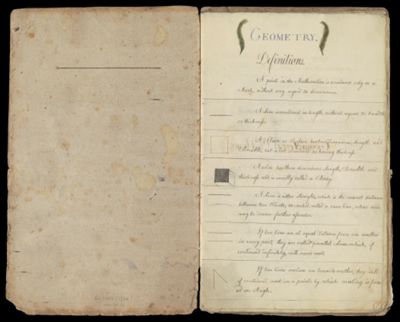 GEOMETRY.
Definitions.
A point in the Mathematics is considered only as a
Mark, without any regard to dimensions.
A Line is considered as length, without regard to breadth
or thickness.
A
length, and
having thickness.
A Solid has three dimensions, length, breadth and
thickness and is usually called a Body.
A Line is either straight, which is the nearest distance
between two Points, or crooked, called a curve line, whose ends
may be drawn further asunder.
If two lines are at equal distance from one another
in every part, they are called parallel Lines, which, if
continued infinitely, will never meet.
If two lines incline one towards another, they will
if continued meet in a point; by which meeting is form-
ed an Angle.